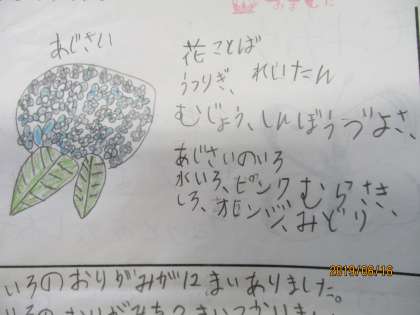 あじさい
花ことば
うつりぎ、れいたん
むじょう、しんぼうづよさ、
あじさいのいろ
水いろ、ピンク むらさき、
しろ、オレンジ、みどり
2019/06/16
いろのおりがみが12まいありました。